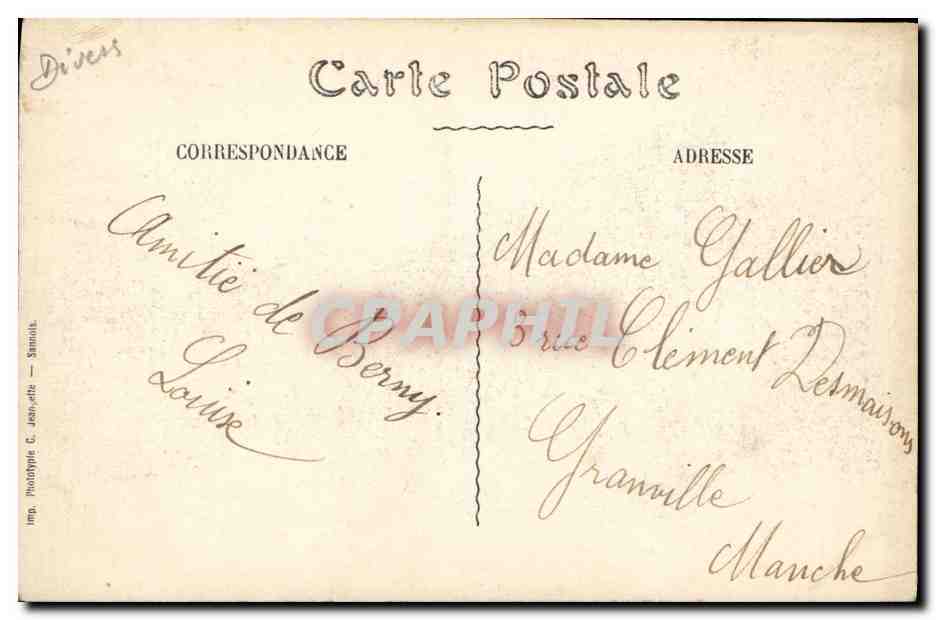 Divers
Carte Postale
CORRESPONDANCE
ADRESSE
Amitié de Berny.
Louise
Madame Gallier
rue Clément Desmaisons
Granville
Manche
CPAPHIL
Imp. Phototypie C. Jeangette — Sannois.